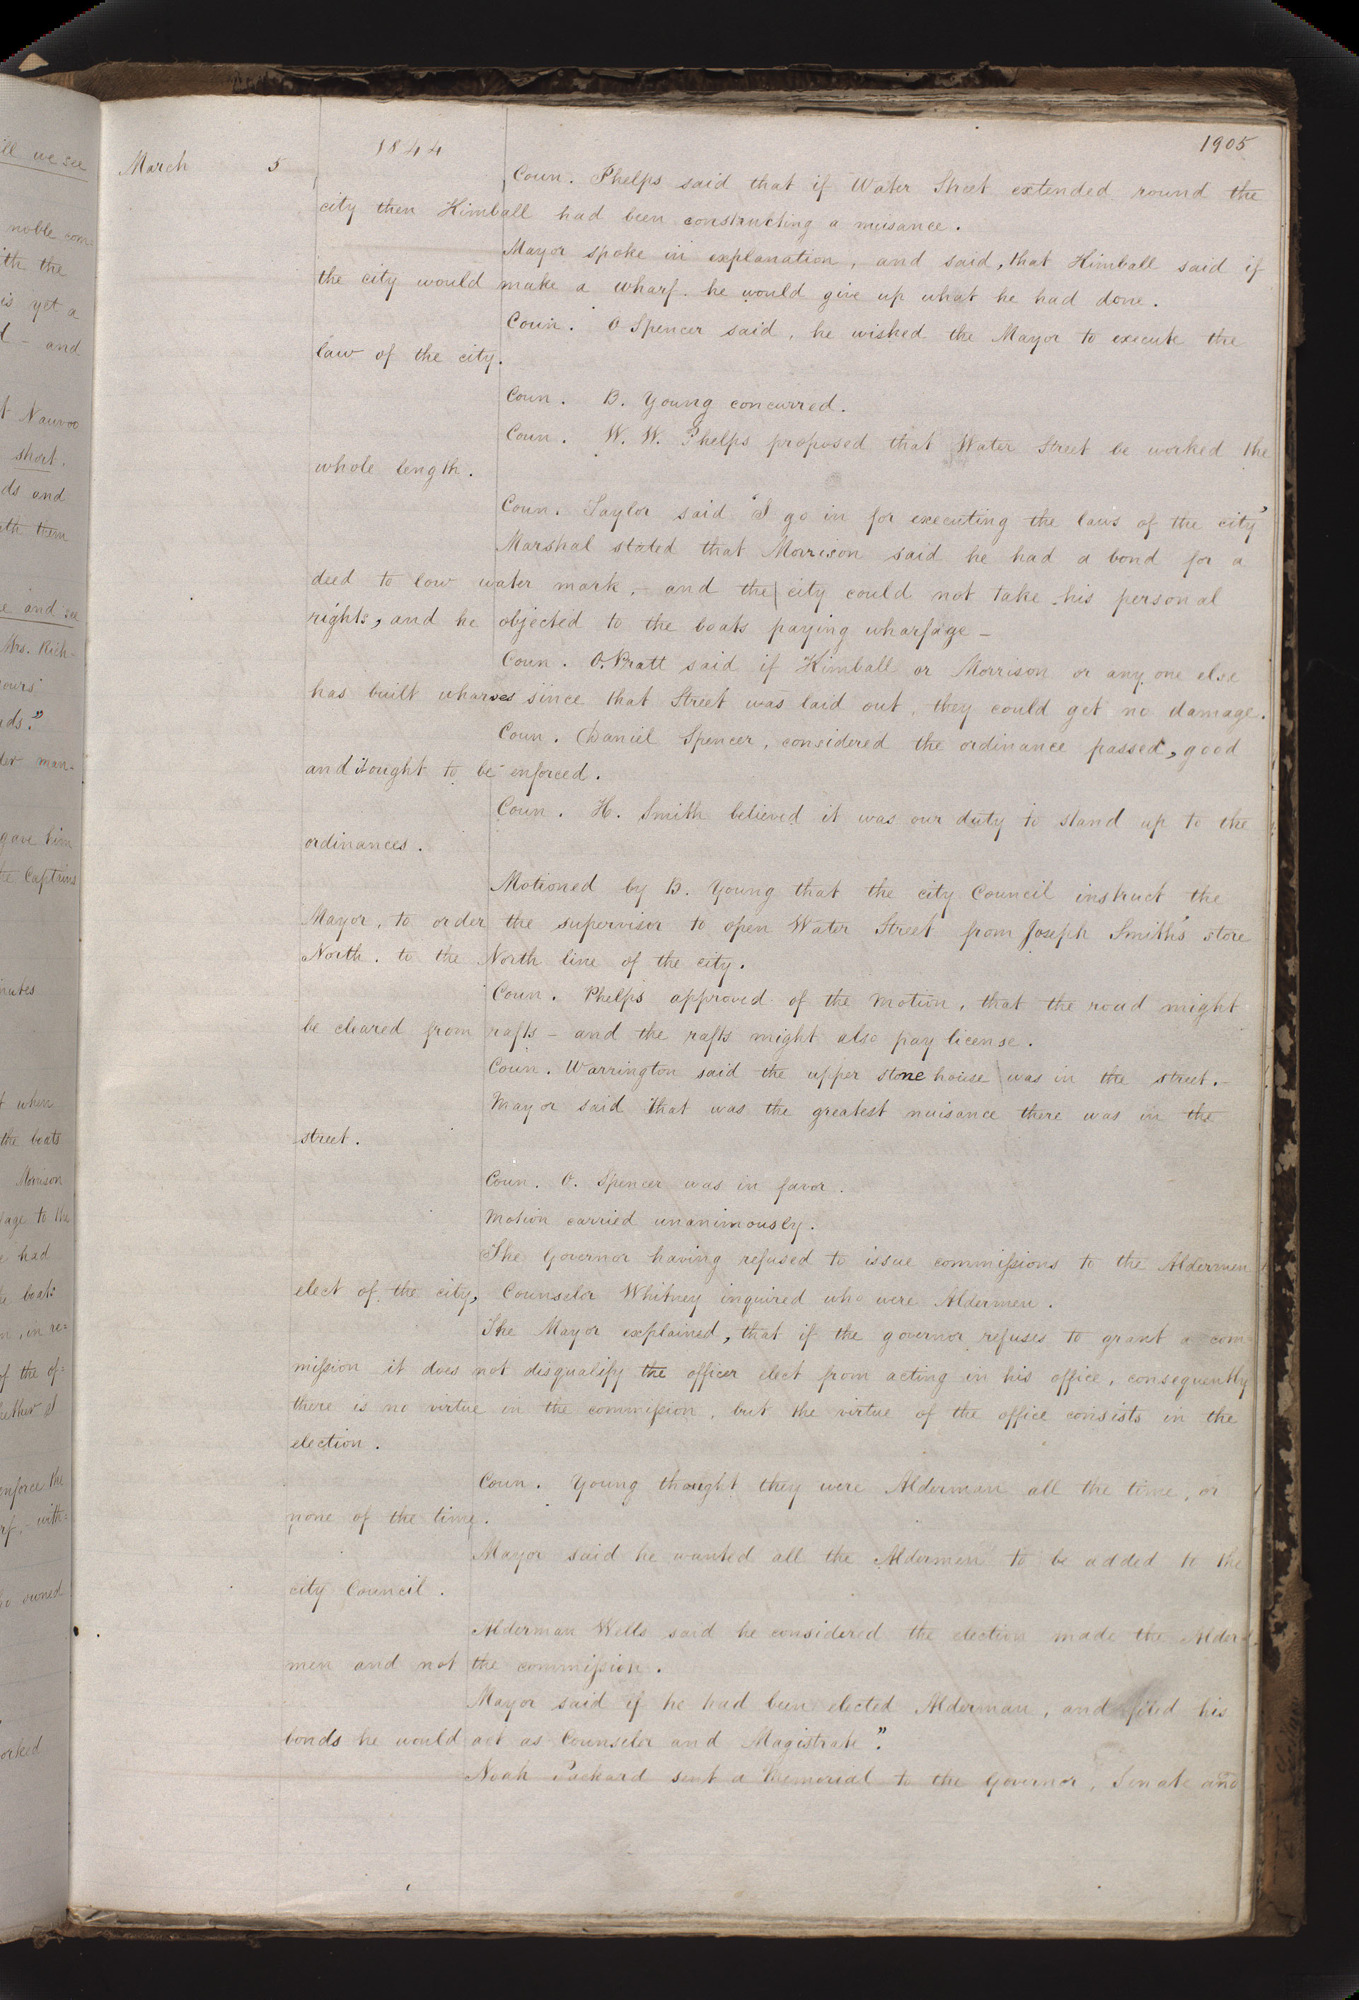 1844
1905
March 5
Coun. Phelps said that if Water Street extended round the
city then Kimball had been constructing a nuisance.
Mayor spoke in explanation, and said, that Kimball said if
the city would make a wharf. he would give up what he had done.
Coun. O Spencer said, he wished the Mayor to execute the
law of the city.
Coun. B. Young concurred.
Coun. W. W. Phelps proposed that Water Street be worked the
whole length.
Coun. Taylor said "I go in for executing the laws of the city"
Marshal stated that Morrison said he had a bond for a
deed to low water mark, - and the city could not take his personal
rights, and he objected to the boats paying wharfage -
Coun. O. Pratt said if Kimball or Morrison or any one else
has built wharves since that Street was laid out, they could get no damage.
Coun. Daniel Spencer, considered the ordinance passed, good
and ought to be enforced.
Coun. H. Smith believed it was our duty to stand up to the
ordinances.
Motioned by B. Young that the city Council instruct the
Mayor, to order the supervisor to open Water Street from Joseph Smith's store
North. to the North line of the city.
Coun. Phelps approved of the motion, that the road might
be cleared from rafts - and the rafts might also pay license.
Coun. Warrington said the upper stone house was in the street. -
Mayor said that was the greatest nuisance there was in the
street.
Coun. O. Spencer was in favor.
Motion carried unanimously.
The Governor having refused to issue commissions to the Aldermen
elect of the city, Counselor Whitney inquired who were Aldermen.
The Mayor explained, that if the governor refuses to grant a com
mission it does not disqualify the officer elect from acting in his office, consequently
there is no virtue in the commission, but the virtue of the office consists in the
election.
Coun. Young thought they were Alderman all the time, or
none of the time.
Mayor said he wanted all the Aldermen to be added to the
city Council.
Alderman Wells said he considered the election made the Alder-
men and not the commission.
Mayor said if he had been elected Alderman, and filed his
bonds he would act as Counselor and Magistrate."
Noah Packard sent a memorial to the Governor, Senate and
ill we see
noble com
ith the
is yet a
- and
Nauvoo
short.
ds and
ath them
e and see
Mrs. Rich-
yours
ads."
der man-
gave him
he Captains
nutes
t when
the boats
Morrison
age to the
had
e boats
n, in re=
of the of=
hether I
enforce the
rf, with=
ho owned
orked